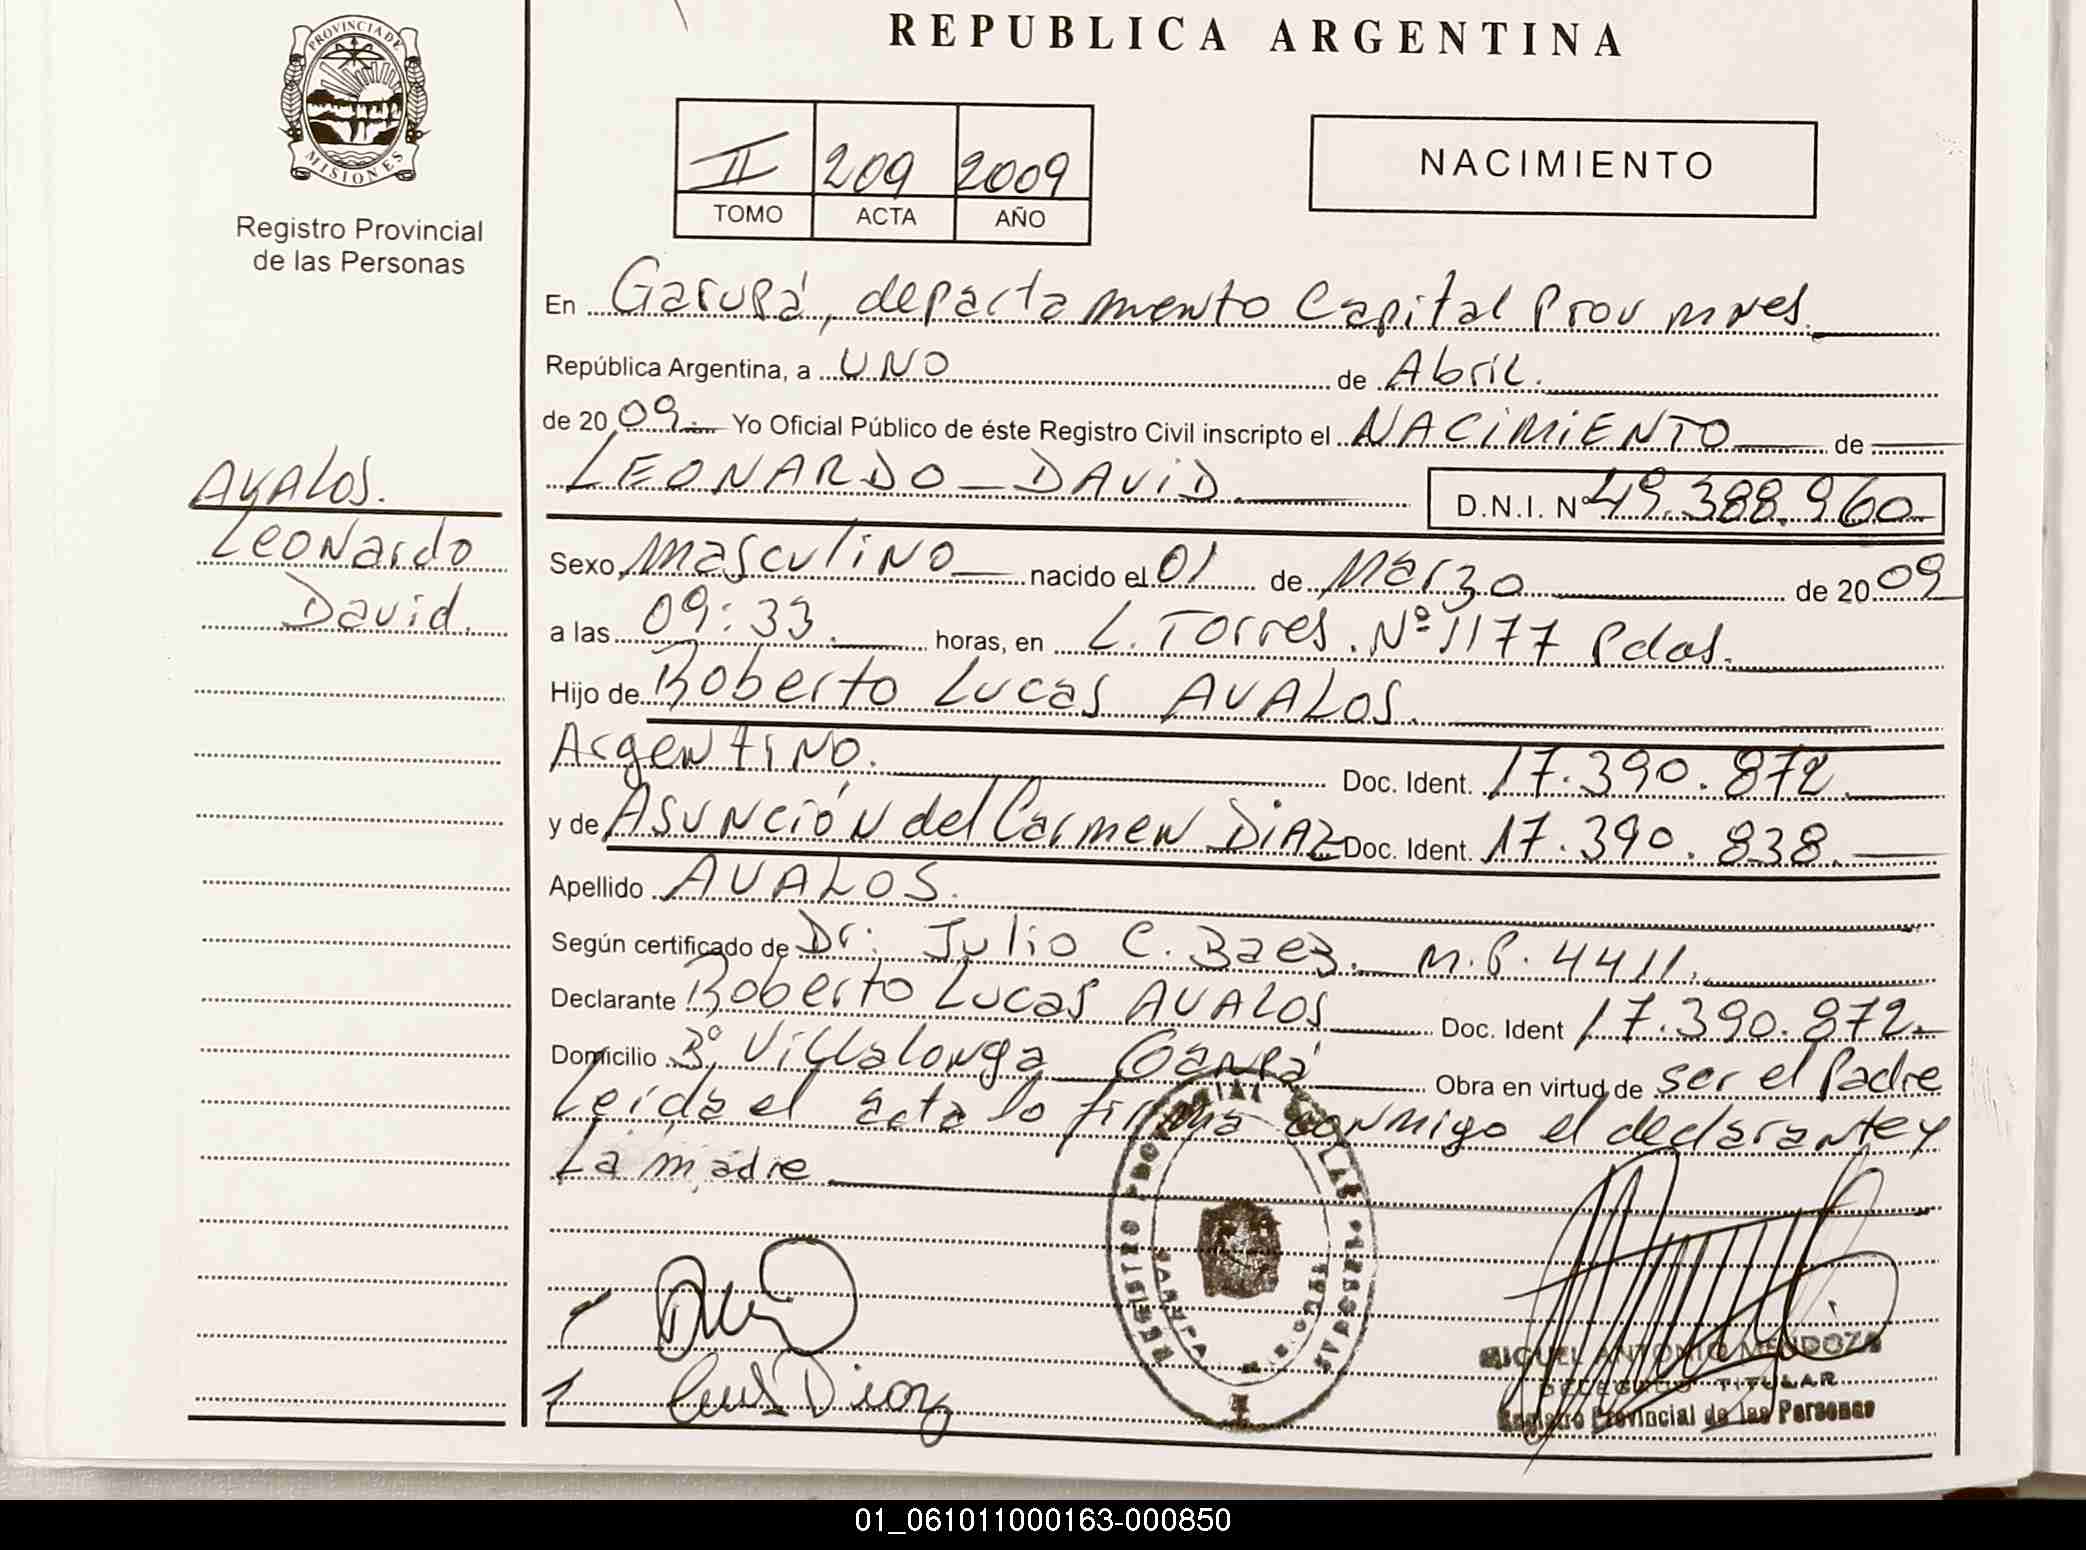 REPUBLICA ARGENTINA
PROVINCIA DE
MISIONES
Registro Provincial
de las Personas
II 209 2009
TOMO ACTA AÑO
NACIMIENTO
En Garupá, departamento Capital Prov mnes.
República Argentina, a UNO de Abril.
de 2009. Yo Oficial Público de éste Registro Civil inscripto el NACIMIENTO de
LEONARDO-DAVID. D.N.I. Nº 49.388.960
AVALOS.
Leonardo
David.
Sexo Masculino nacido el 01 de Marzo de 2009
a las 09:33. horas, en L. Torres. Nº 1177 Pdas.
Hijo de Roberto Lucas AVALOS.
Argentino. Doc. Ident. 17.390.872.
y de Asunción del Carmen DiAZ Doc. Ident. 17.390.838.
Apellido AVALOS.
Según certificado de Dr: Julio C. Baez. M.P. 4411.
Declarante Roberto Lucas AVALOS Doc. Ident 17.390.872.
Domicilio Bº Villalonga Garupá Obra en virtud de ser el Padre
Leída el acta lo firma conmigo el declarante y
La madre
REGISTRO PROVINCIAL DE LAS PERSONAS
GARUPA
MIGUEL ANTONIO MENDOZA
DELEGADO TITULAR
Registro Provincial de las Personas
01_061011000163-000850